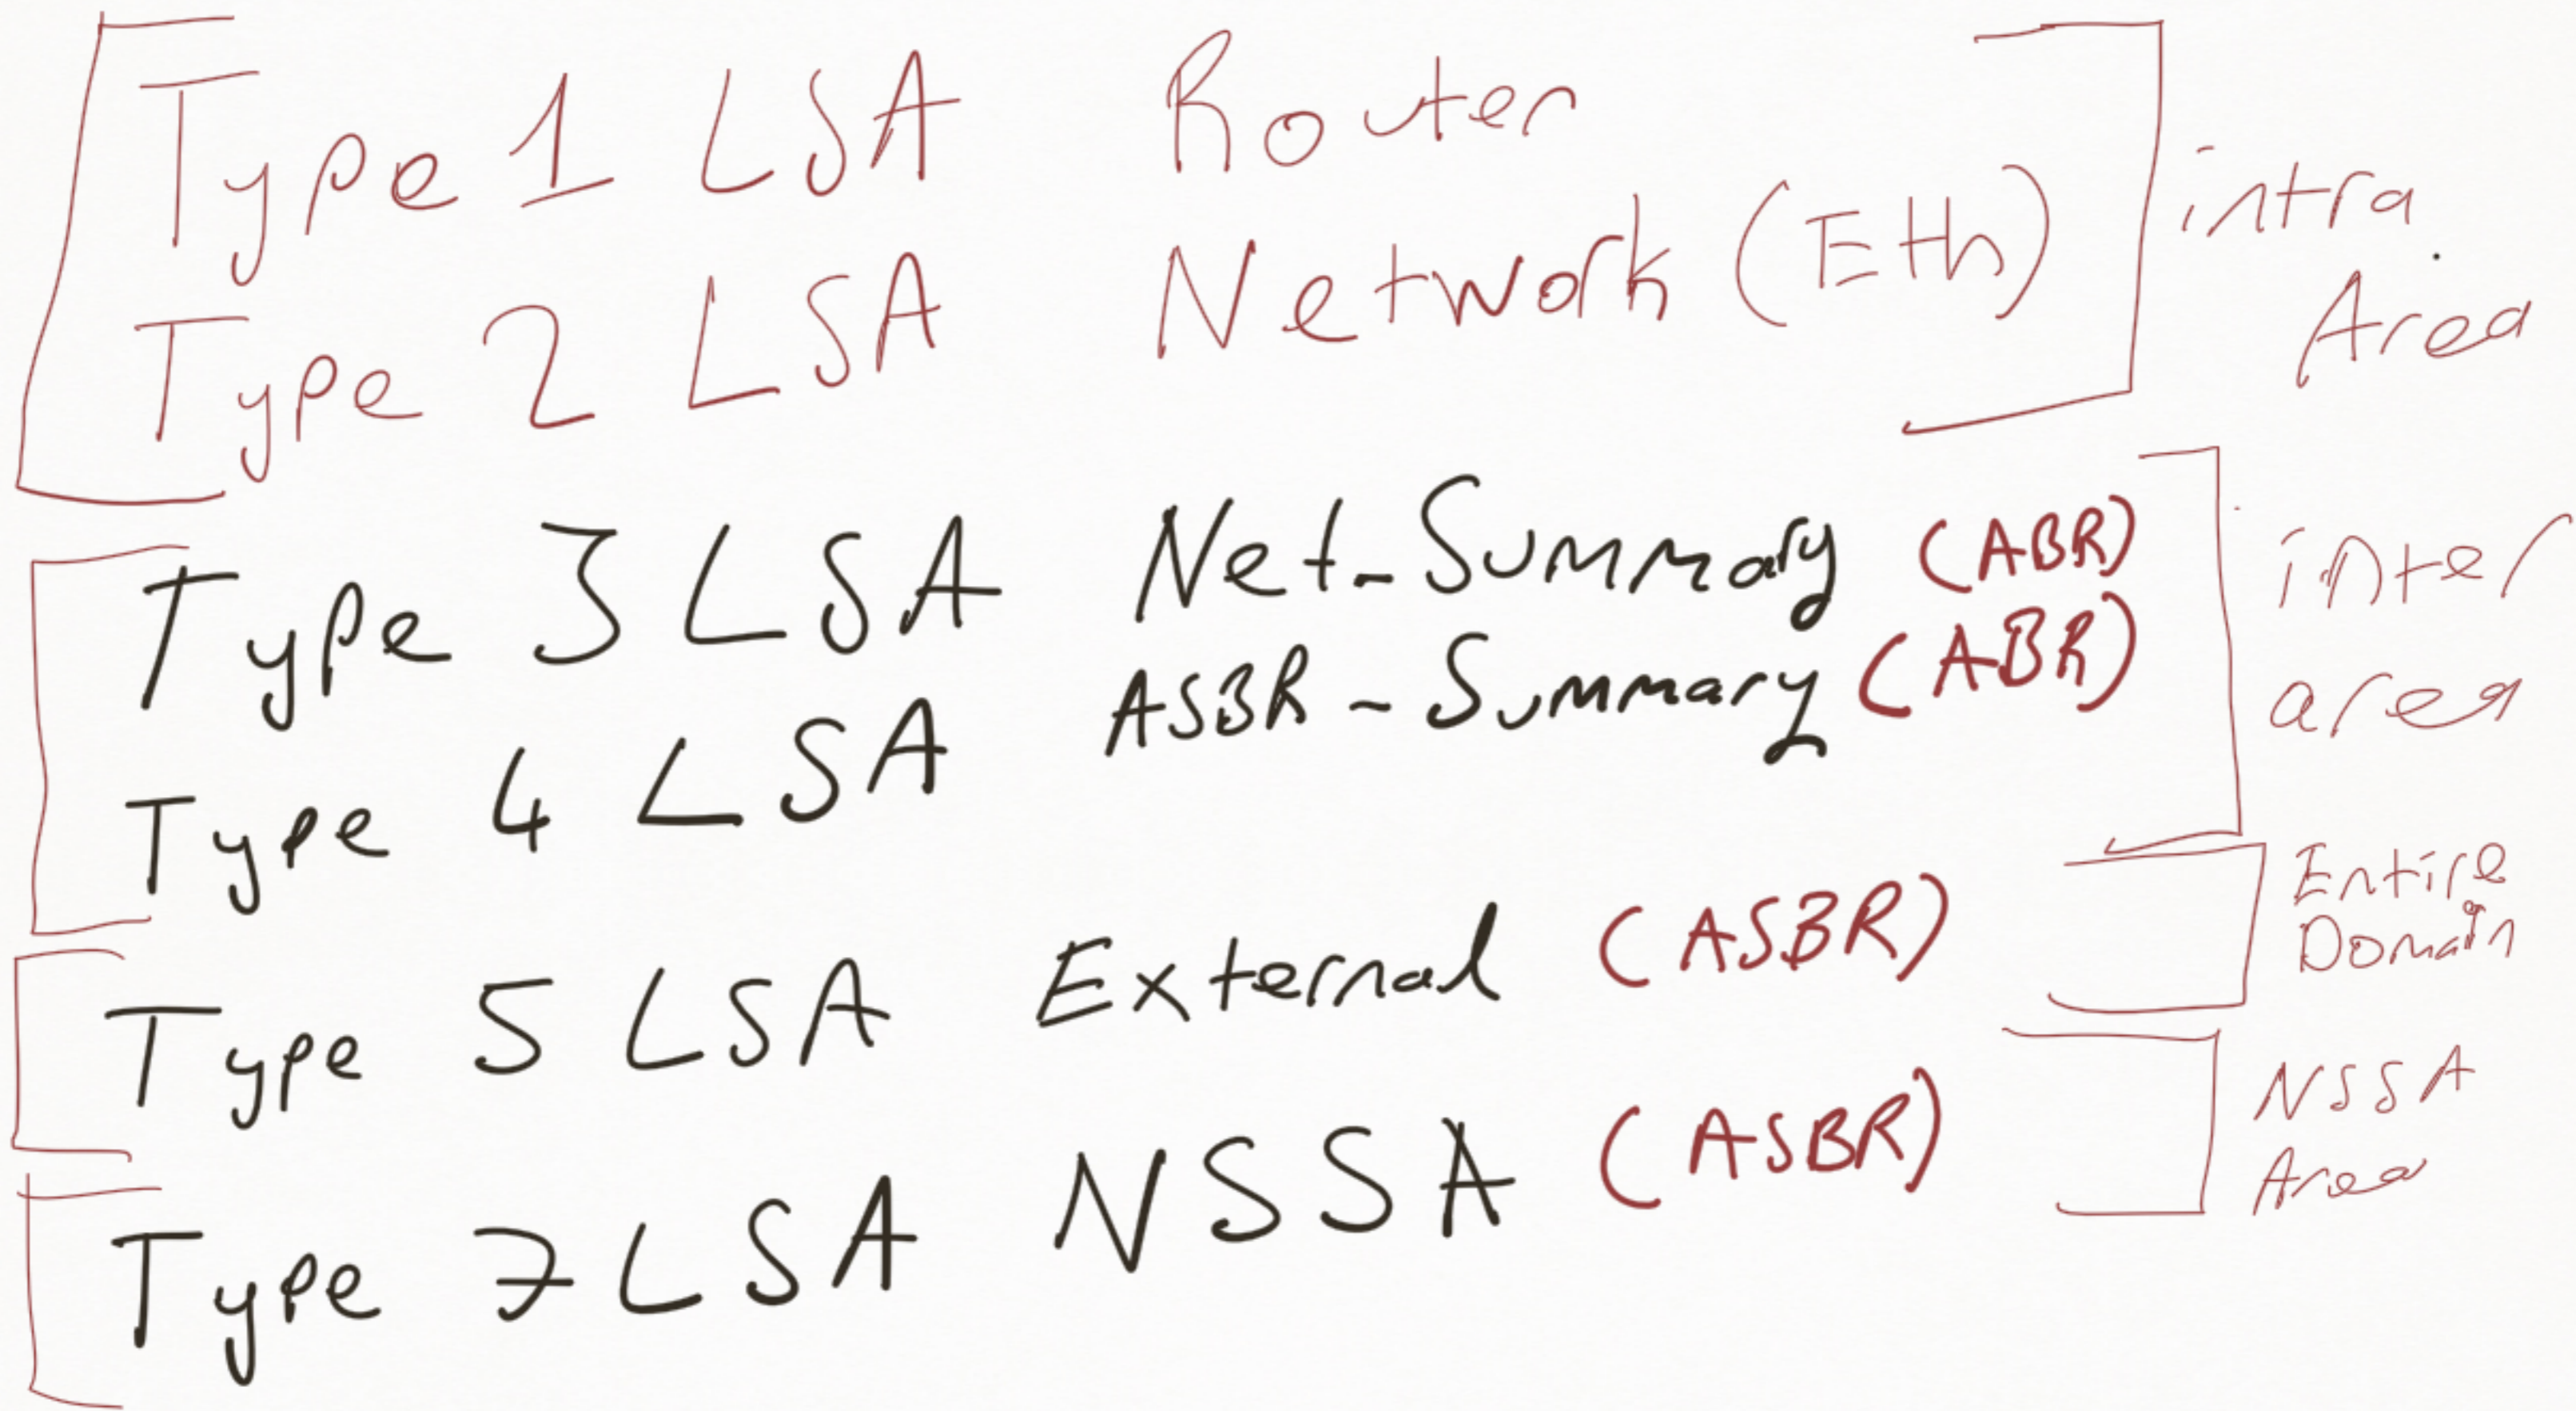 Type 1 LSA Router
Type 2 LSA Network (Eth)
intra
Area
Type 3 LSA Net-Summary (ABR)
Type 4 LSA ASBR-Summary (ABR)
inter
area
Type 5 LSA External (ASBR)
Entire
Domain
Type 7 LSA NSSA (ASBR)
NSSA
Area